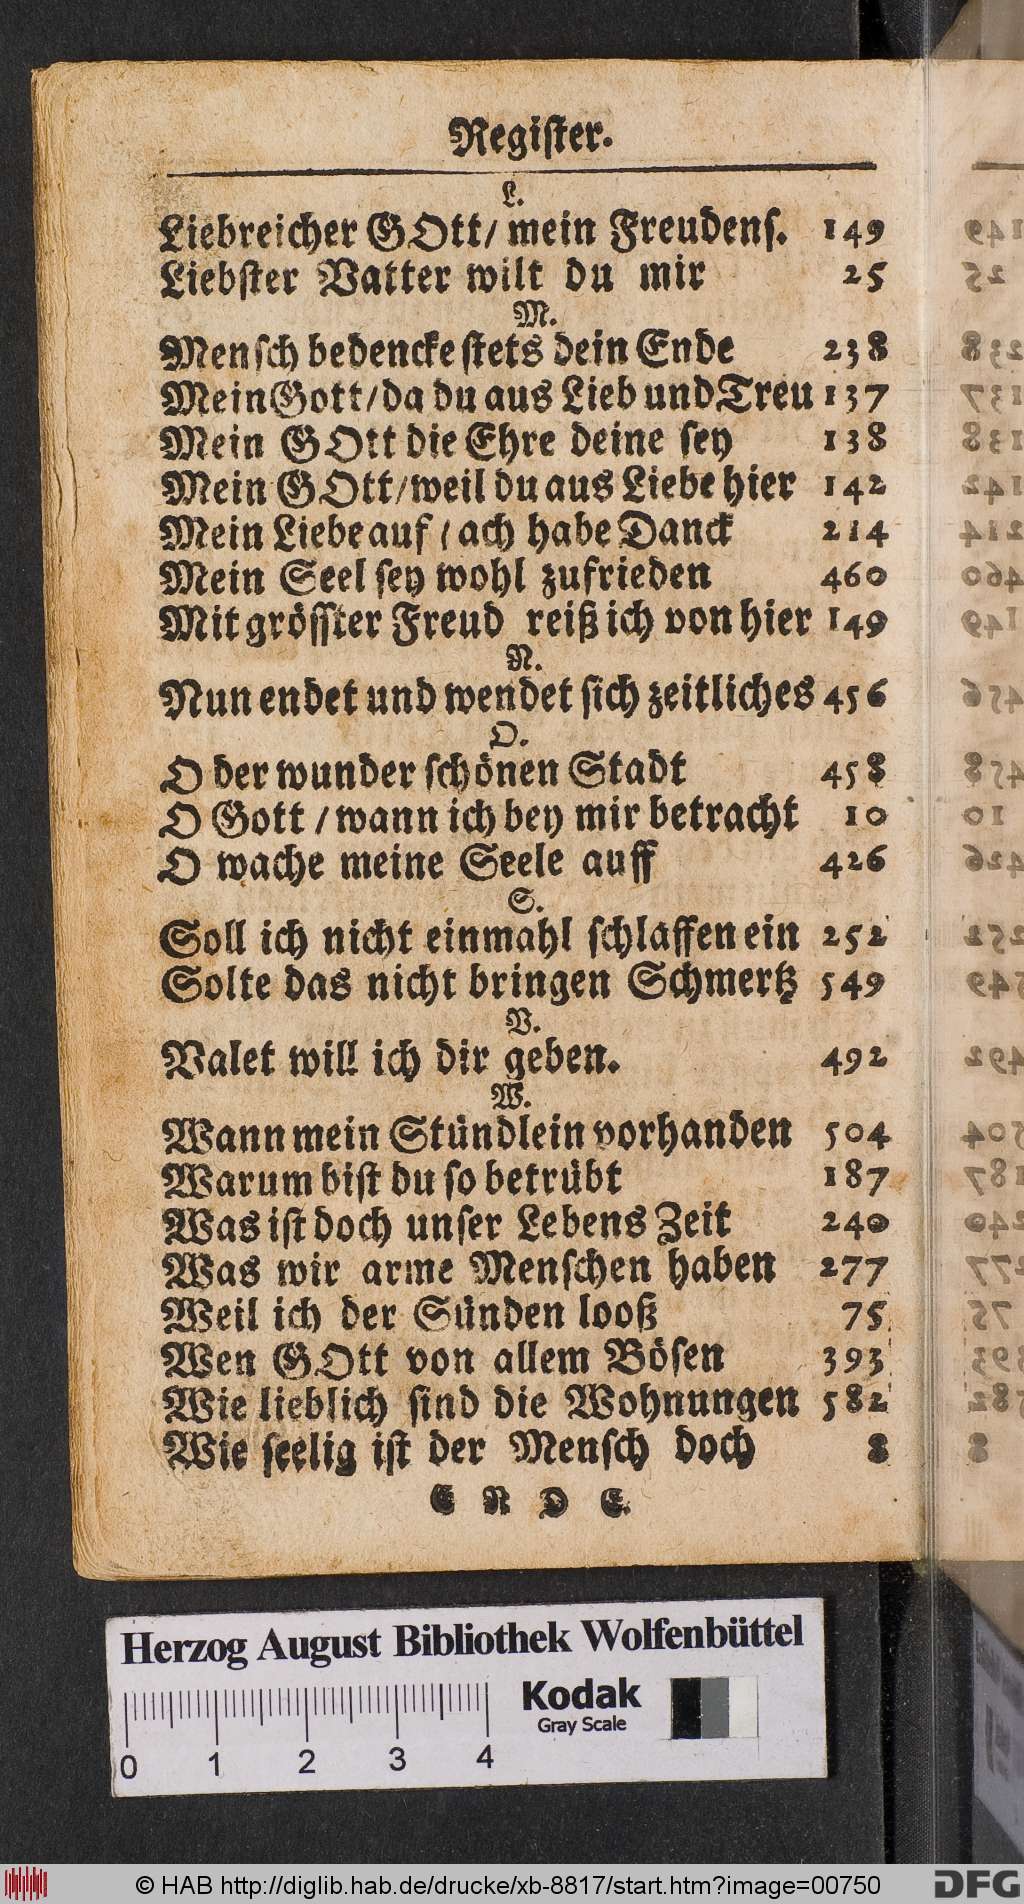 Register.
L.
Liebreicher GOtt/ mein Freudens. 149
Liebster Vatter wilt du mir 25
M.
Mensch bedencke stets dein Ende 238
Mein Gott/ da du aus Lieb und Treu 137
Mein GOtt die Ehre deine sey 138
Mein GOtt/ weil du aus Liebe hier 142
Mein Liebe auf / ach habe Danck 214
Mein Seel sey wohl zufrieden 460
Mit grösster Freud reiß ich von hier 149
N.
Nun endet und wendet sich zeitliches 456
O.
O der wunder schönen Stadt 458
O Gott / wann ich bey mir betracht 10
O wache meine Seele auff 426
S.
Soll ich nicht einmahl schlaffen ein 252
Solte das nicht bringen Schmertz 549
V.
Valet will ich dir geben. 492
W.
Wann mein Stündlein vorhanden 504
Warum bist du so betrübt 187
Was ist doch unser Lebens Zeit 240
Was wir arme Menschen haben 277
Weil ich der Sünden looß 75
Wen GOtt von allem Bösen 393
Wie lieblich sind die Wohnungen 582
Wie seelig ist der Mensch doch 8
E N D E.
Herzog August Bibliothek Wolfenbüttel
Kodak
Gray Scale
0 1 2 3 4
© HAB http://diglib.hab.de/drucke/xb-8817/start.htm?image=00750
DFG